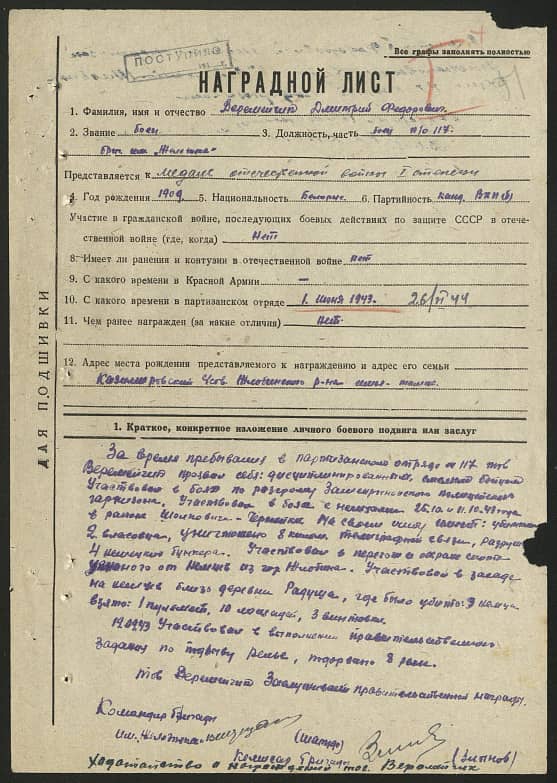 ПОСТУПИЛО
Все графы заполнять полностью
НАГРАДНОЙ ЛИСТ
1. Фамилия, имя и отчество Веремейчик Дмитрий Федорович
2. Звание боец 3. Должность, часть боец п/о 117.
Представляется к медаль отечественной войны I степени
4. Год рождения 1909 5. Национальность Белорус. 6. Партийность канд. ВКП(б)
Участие в гражданской войне, последующих боевых действиях по защите СССР в отече-
ственной войне (где, когда) Нет
8. Имеет ли ранения и контузии в отечественной войне нет
9. С какого времени в Красной Армии —
10. С какого времени в партизанском отряде 1. июня 1943. 26/VI 44
11. Чем ранее награжден (за какие отличия) нет.
12. Адрес места рождения представляемого к награждению и адрес его семьи
Казимировский Жлобинского р-на
ДЛЯ ПОДШИВКИ
1. Краткое, конкретное изложение личного боевого подвига или заслуг
За время пребывания в партизанском отряде № 117 тов
Веремейчик себя: дисциплинированным, смелым бойцом
Участвовал в боях по разгрому полицейского
гарнизона, Участвовал в боях с немцами 25.10 и 11.10.43 года
в районе На своем имеет: убитыми
2 власовца, уничтожено 8 телеграфной связи, разрушил
4 немецких бункера. Участвовал в и охране
от немцев из гор Жлобина. Участвовал в засаде
на немцев близь деревни Радуша, где было убито: 9 немца
взято: 1 пулемет, 10 лошадей, 3 винтовки.
Участвовал в выполнении правительственного
задания по подрыву рельс, подорвано 8 рельс.
Тов Веремейчик Заслуживает правительственной награды.
Командир бригады
им.
Комисар бригады
Ходатайство о награждении тов. Веремейчик